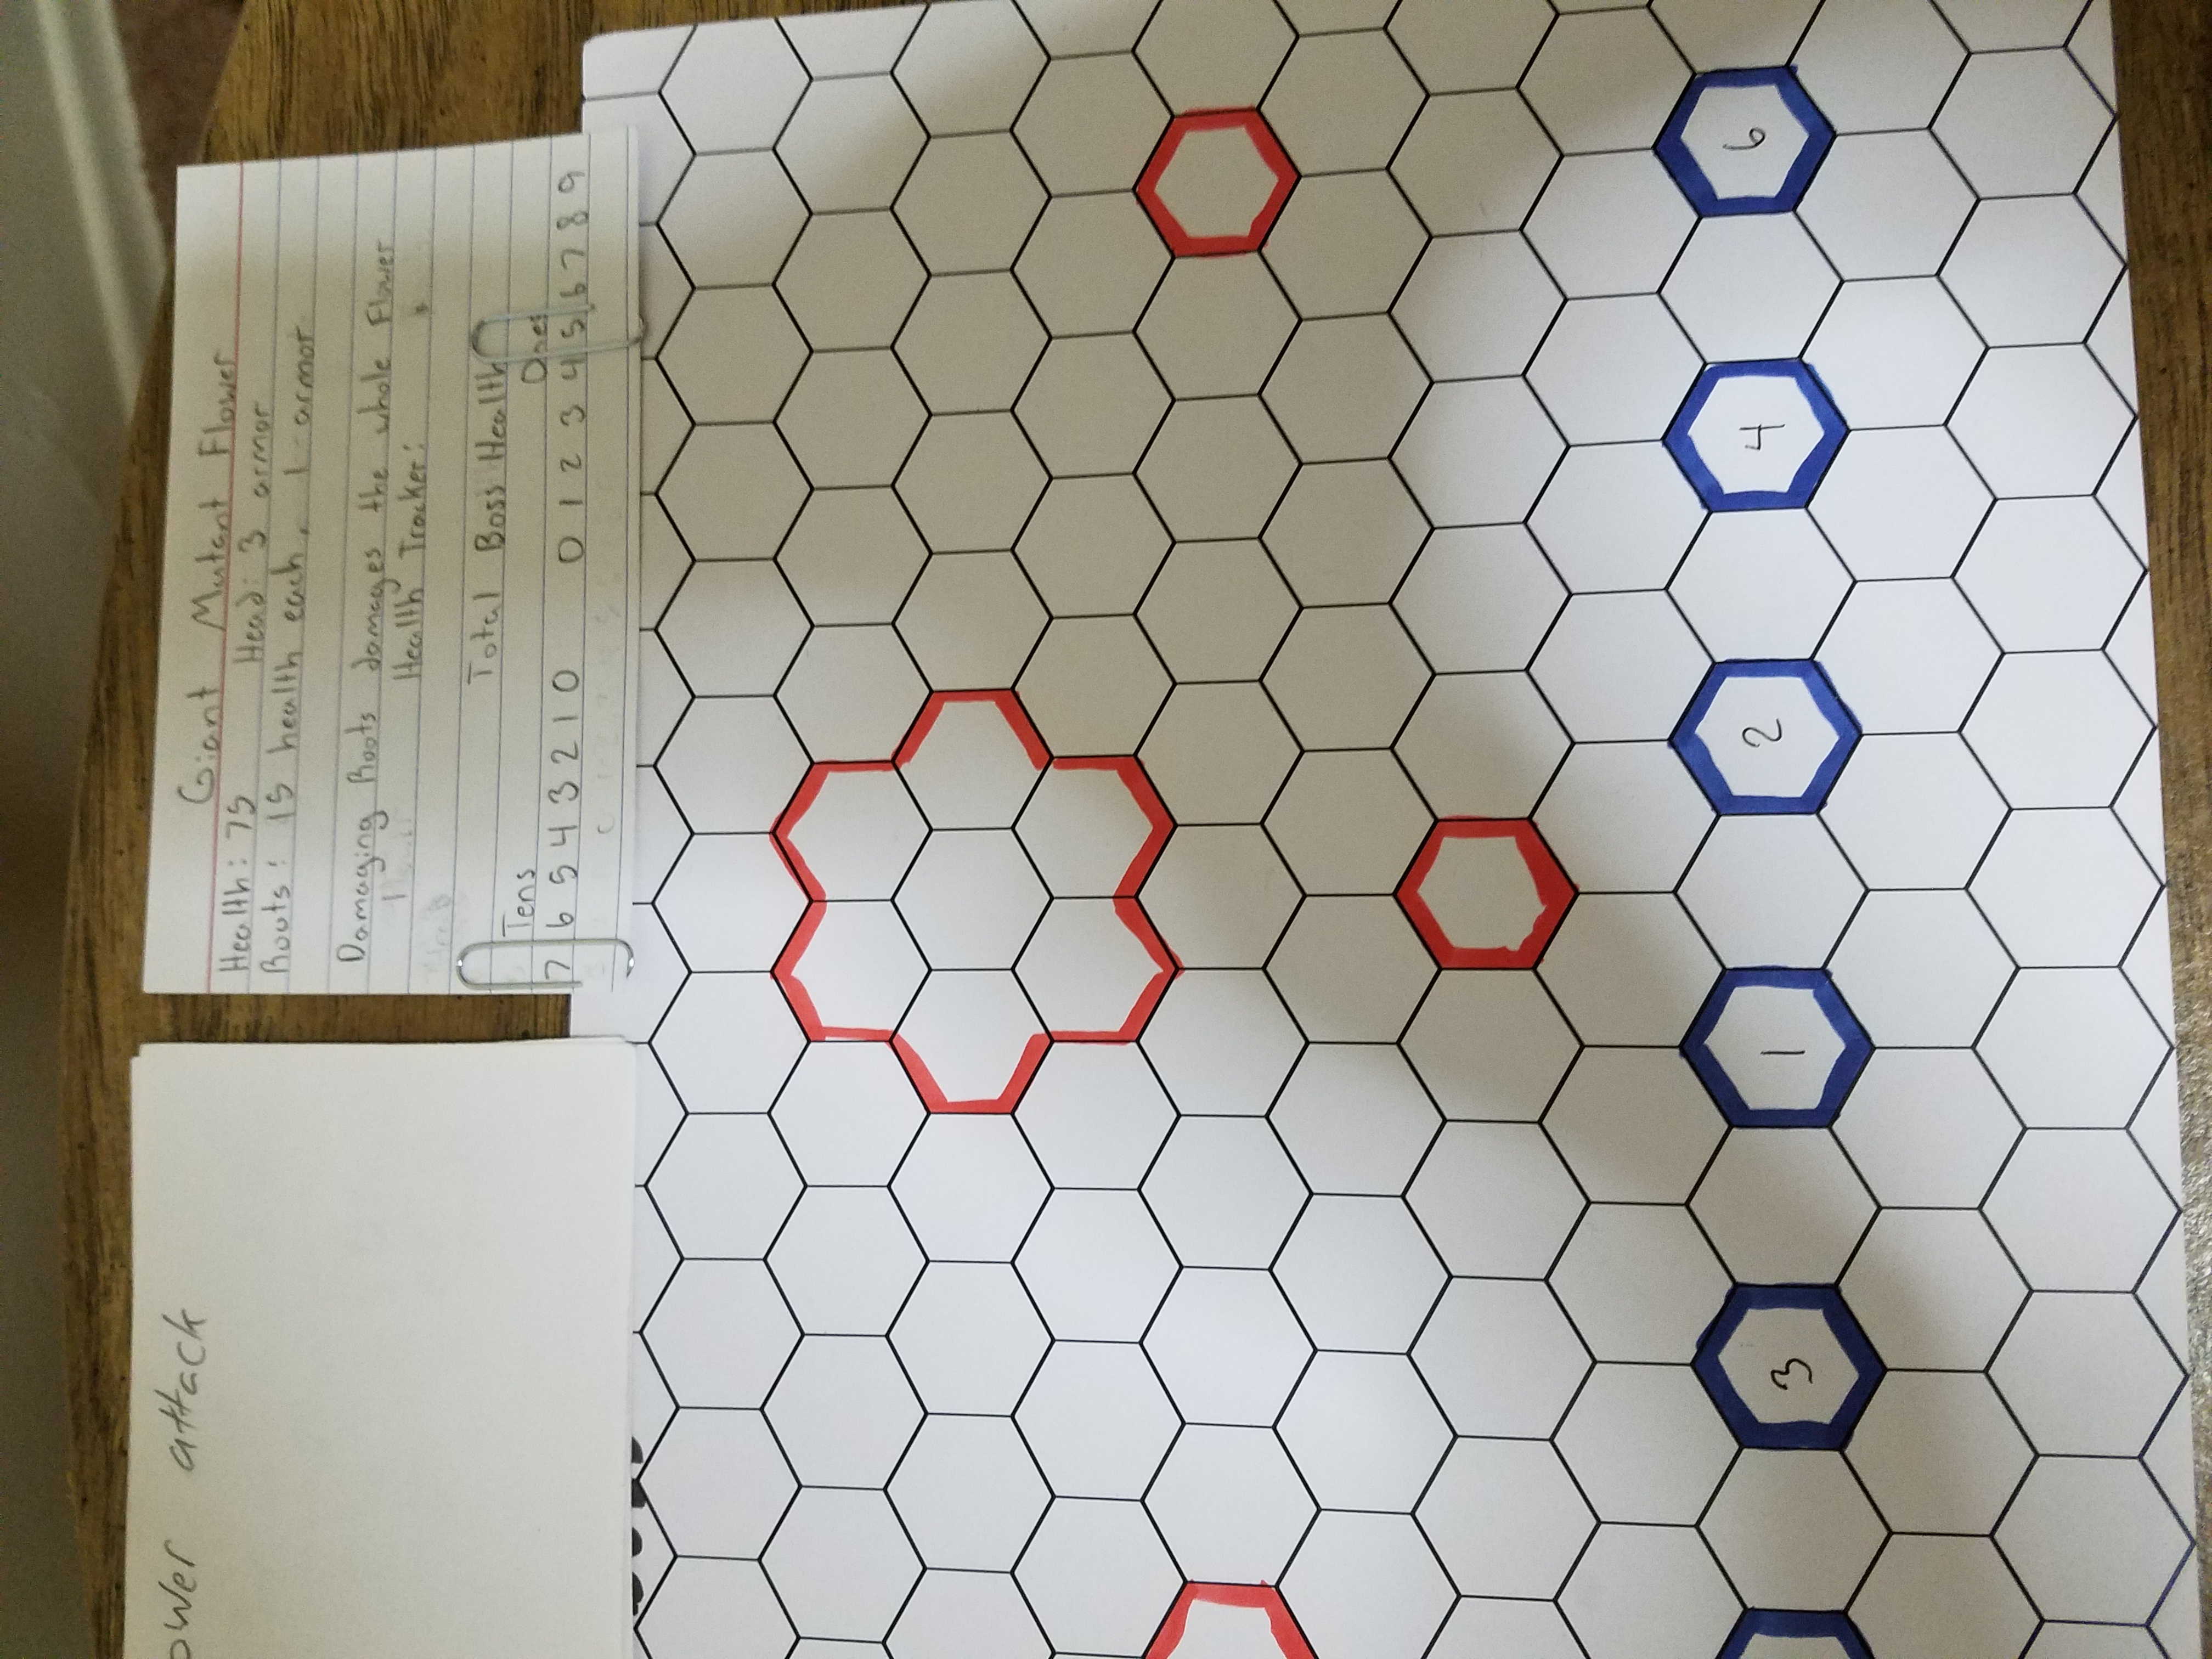 ower attack
Giant Mutant Flower
Health: 75 Head: 3 armor
Roots: 15 health each, 1 armor
Damaging Roots damages the whole Flower
Health Tracker:
Total Boss Health
Tens Ones
7 6 5 4 3 2 1 0 0 1 2 3 4 5 6 7 8 9
3 1 2 4 6